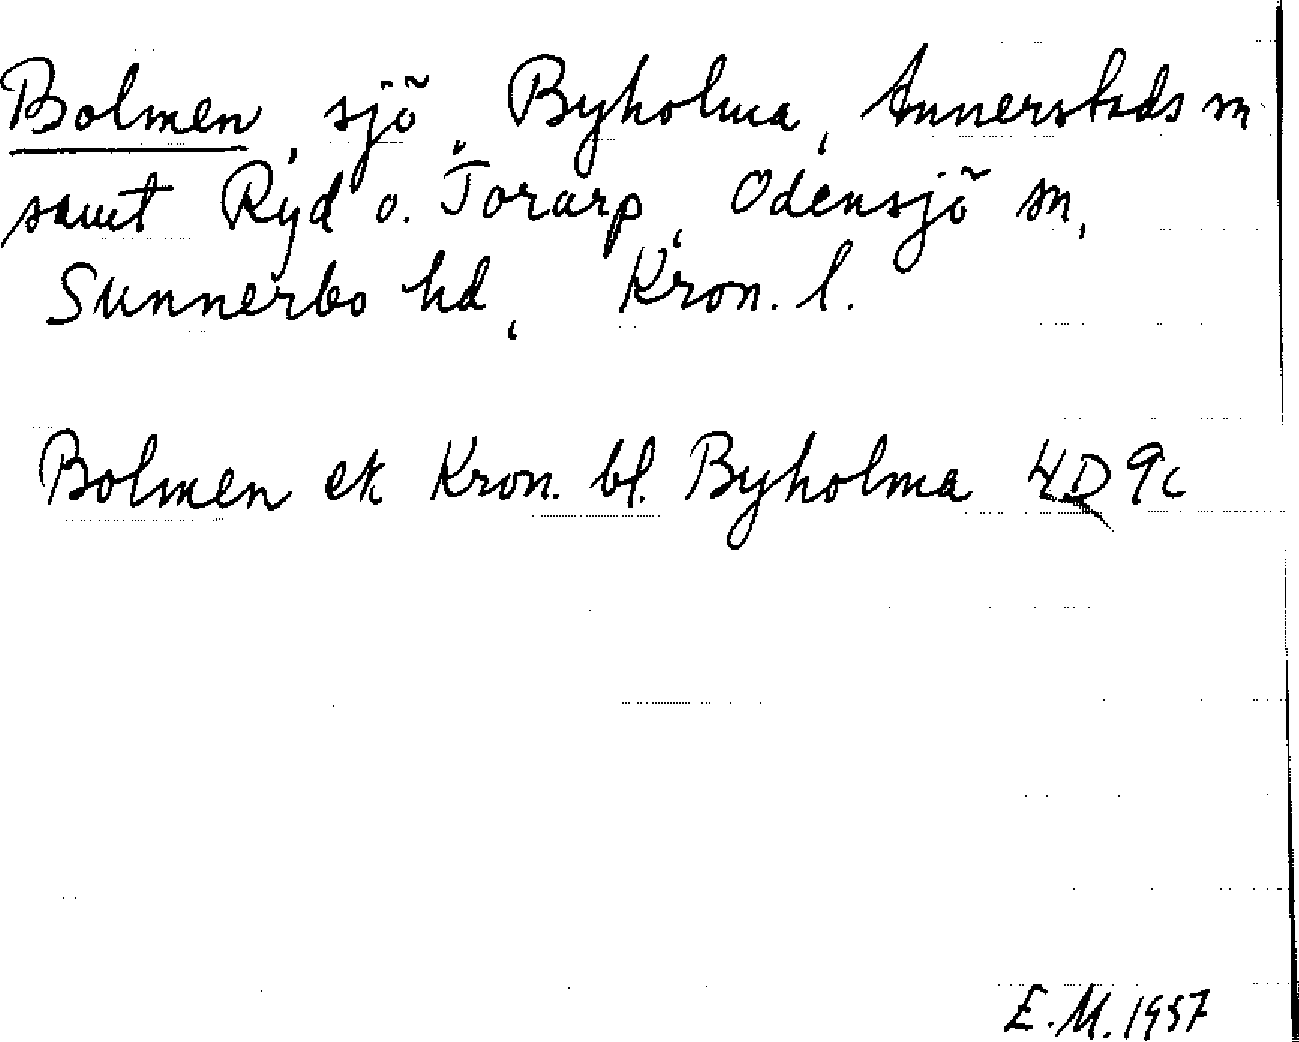 Bolmen, sjö, Byholma, Annerstads sn
samt Ryd o. Torarp, Odensjö sn,
Sunnerbo hd, Kron. l.
Bolmen ek Kron. bl. Byholma 4D 9c
E.M. 1957